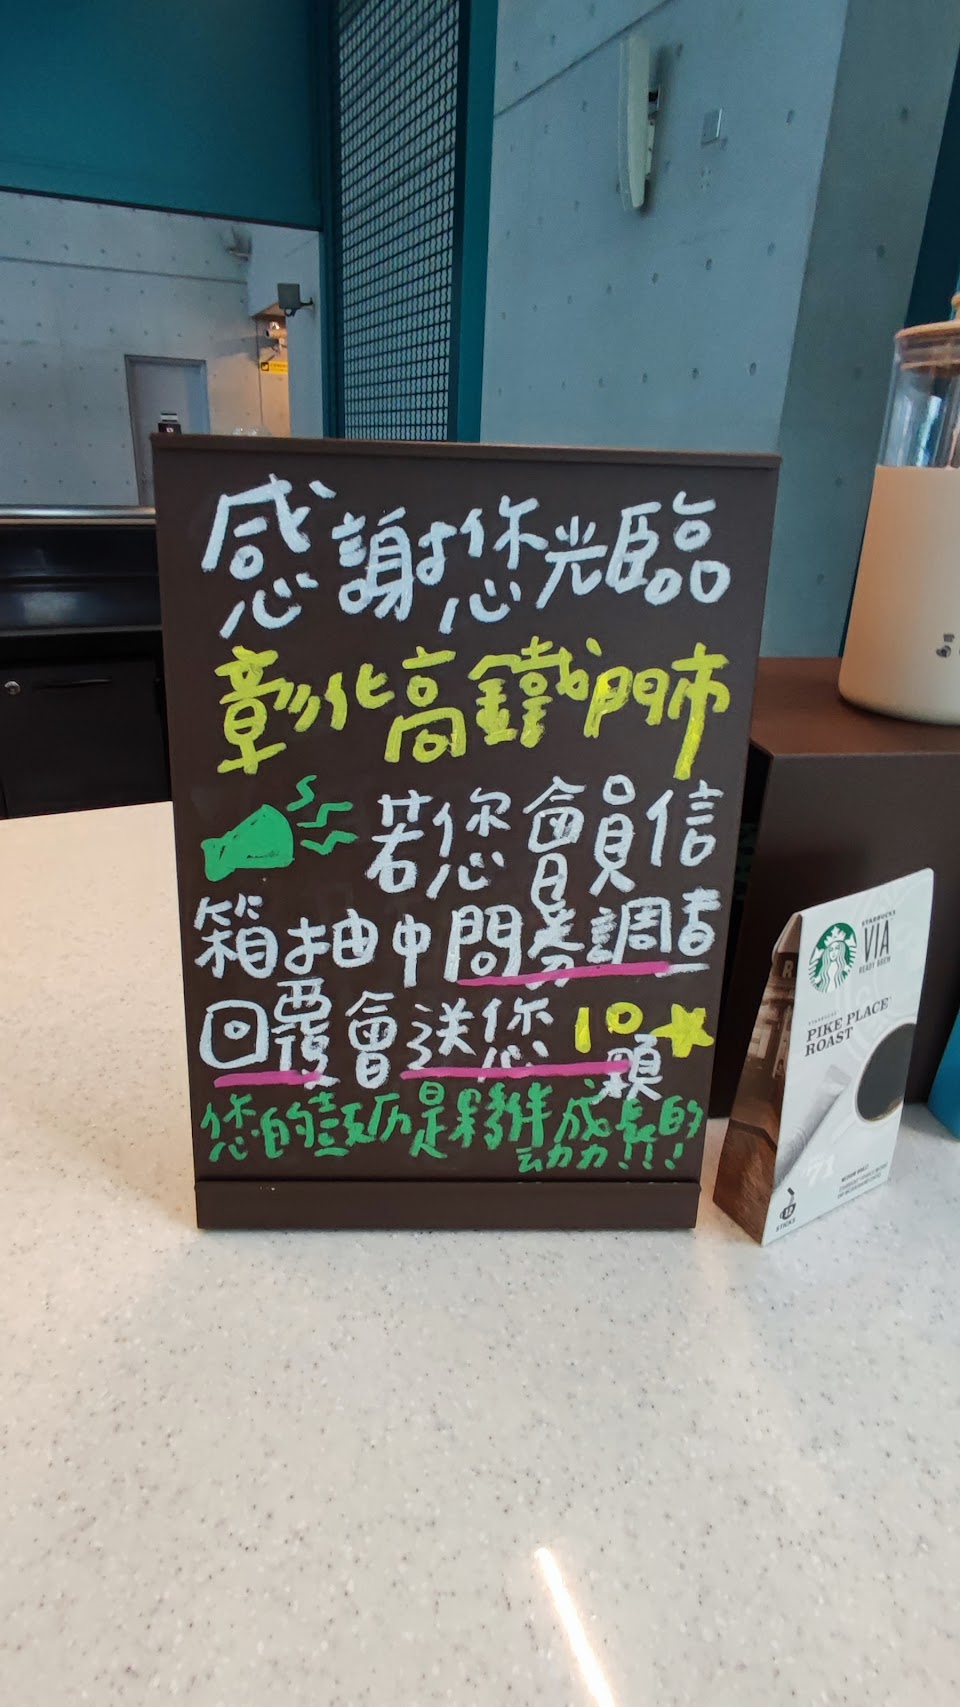 感謝您光臨
彰化高鐵門市
若您會員信
箱抽中問券調查
回覆會送您10顆★
您的鼓励是夥伴成長的
动力!!!
STARBUCKS
VIA
READY BREW
STARBUCKS
PIKE PLACE
ROAST
MEDIUM ROAST
12
STICKS